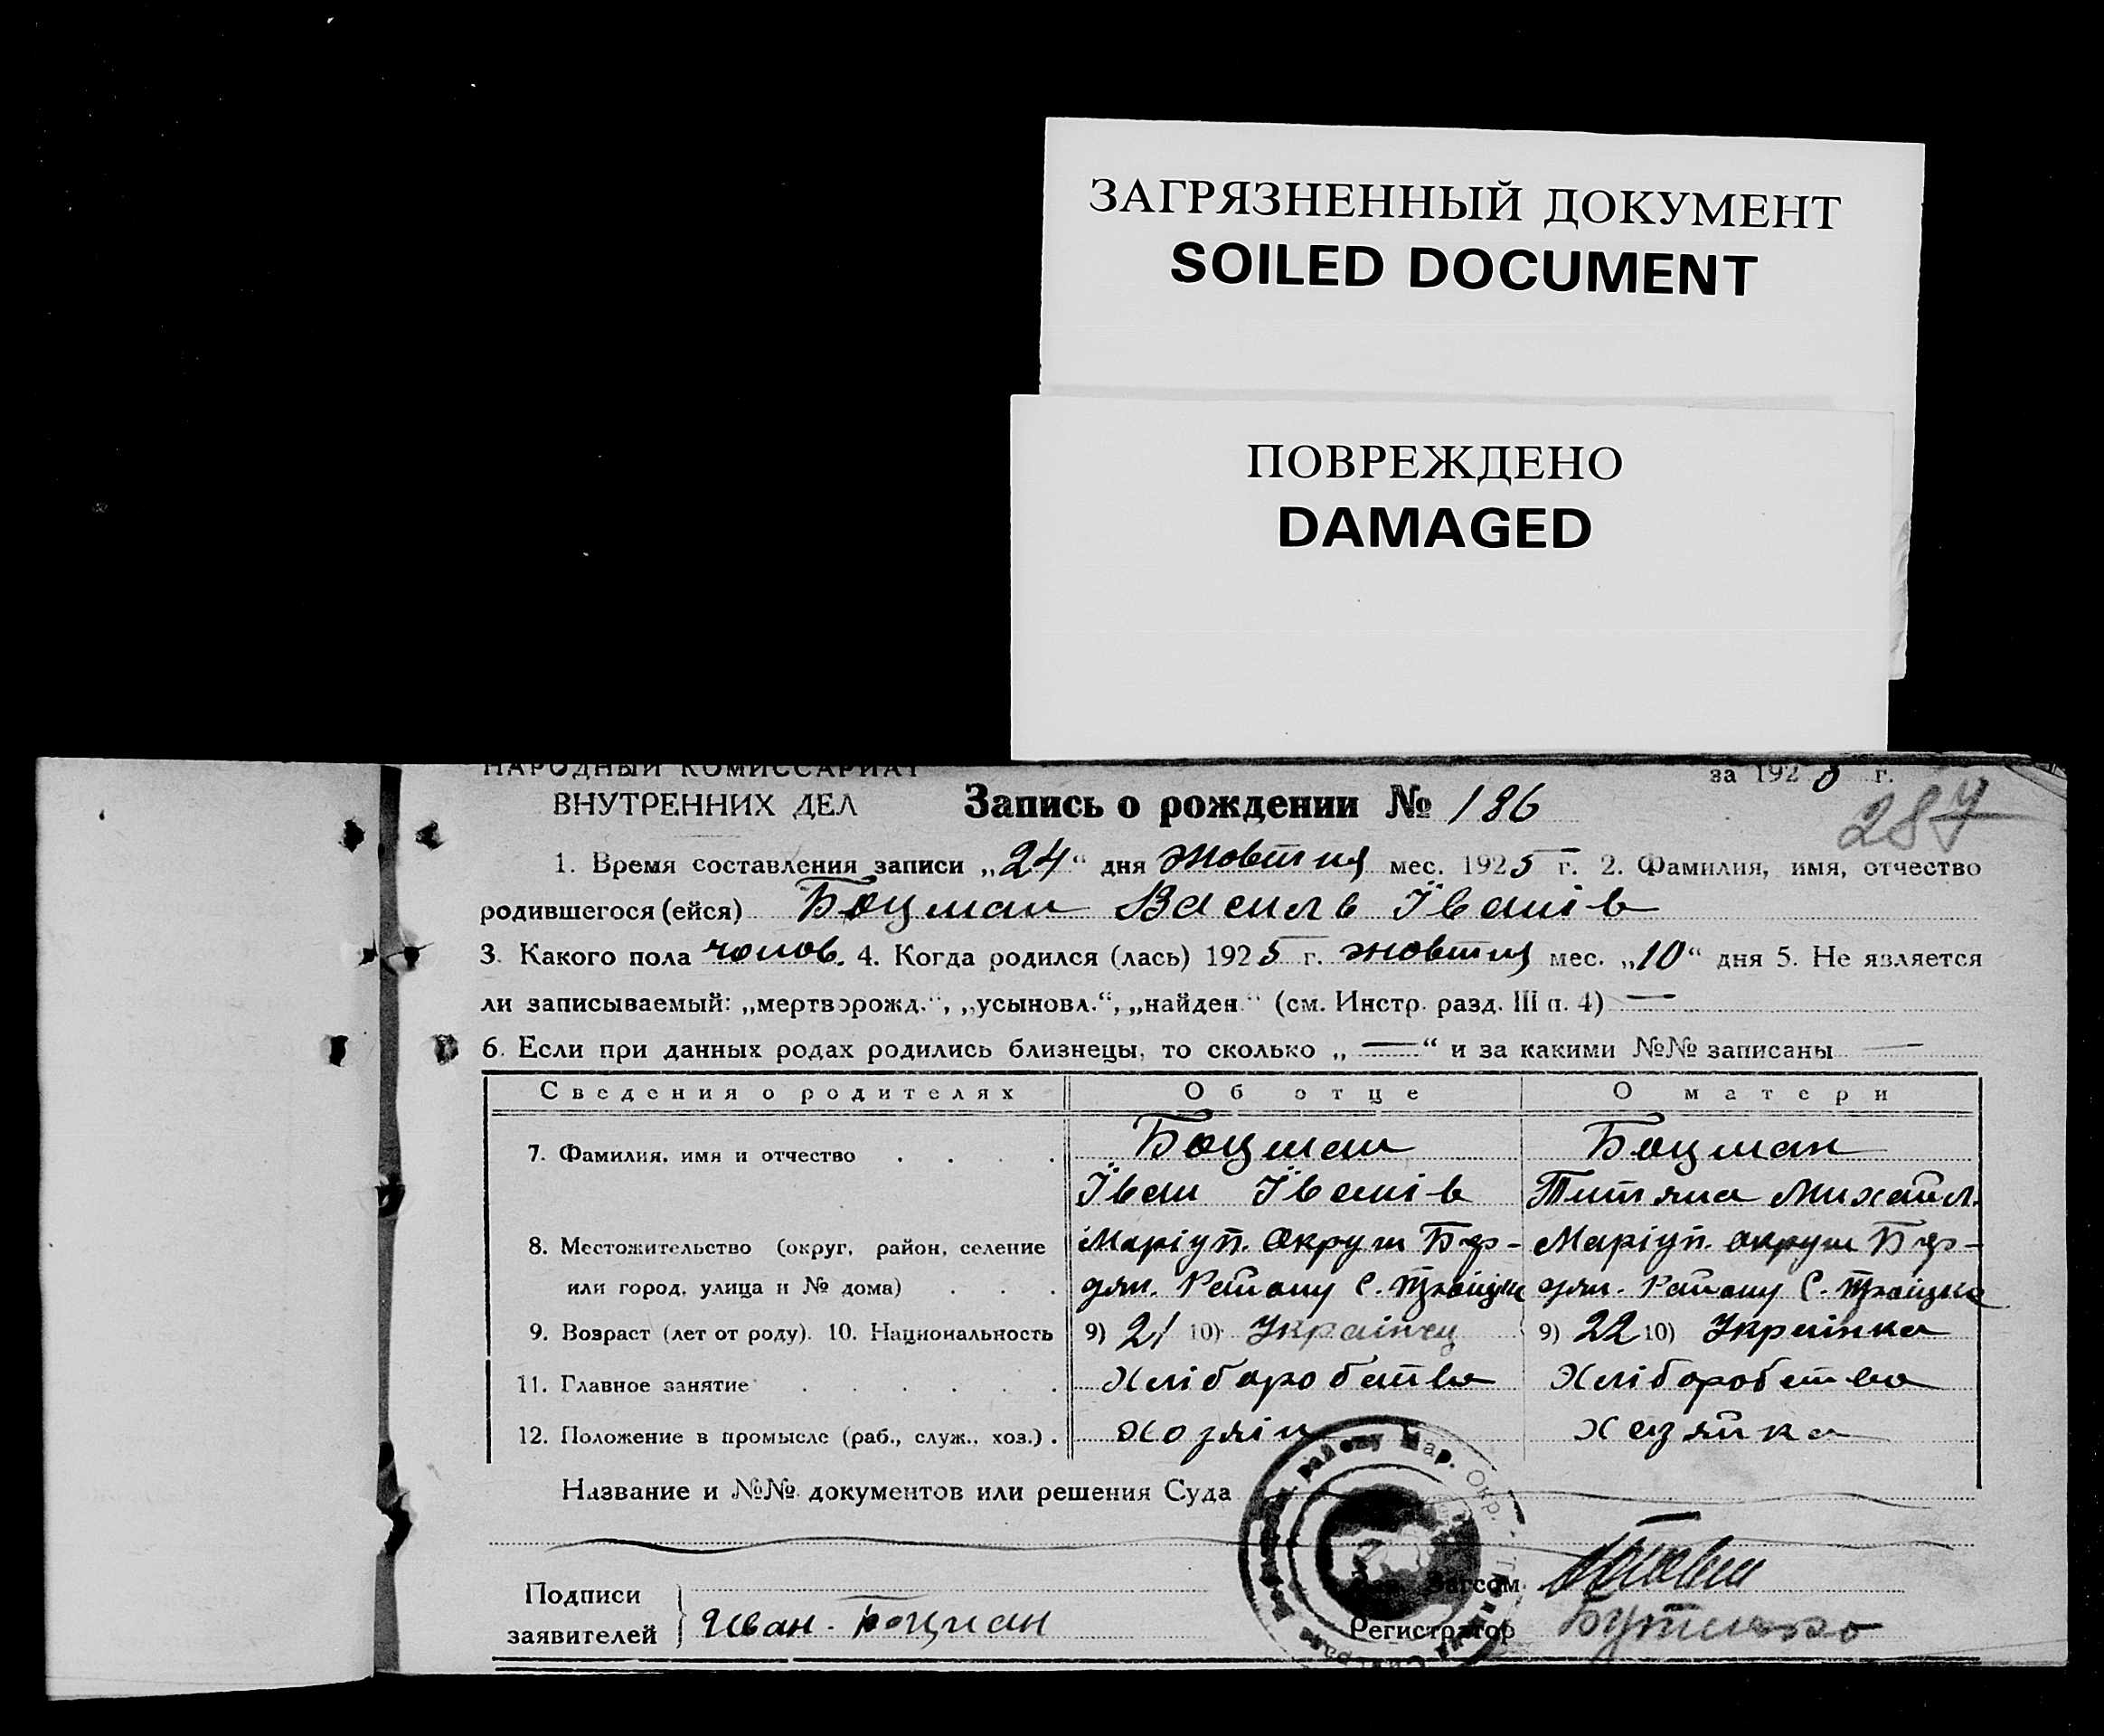 ЗАГРЯЗНЕННЫЙ ДОКУМЕНТ
SOILED DOCUMENT
ПОВРЕЖДЕНО
DAMAGED
НАРОДНЫЙ КОМИССАРИАТ за 192 г.
ВНУТРЕННИХ ДЕЛ Запись о рождении № 186
287
1. Время составления записи „24“ дня жовтня мес. 1925 г. 2. Фамилия, имя, отчество
родившегося (ейся) Боцман Василь Іванів
3. Какого пола чолов. 4. Когда родился (лась) 1925 г. жовтня мес. „10“ дня 5. Не является
ли записываемый: „мертворожд.“, „усыновл.“, „найден“ (см. Инстр. разд. III п. 4) —
6. Если при данных родах родились близнецы, то сколько „—“ и за какими №№ записаны —
Сведения о родителях Об отце О матери
7. Фамилия, имя и отчество . . . . Боцман Боцман
Іван Іванів Титяна Михайл.
8. Местожительство (округ, район, селение Маріуп. округи Бер- Маріуп. округи Бер-
или город, улица и № дома) . . . дян. Району С. Троіцке дян. Району С. Троіцке
9. Возраст (лет от роду). 10. Национальность 9) 21 10) Українец 9) 22 10) Українка
11. Главное занятие . . . . . . Хліборобство Хліборобство
12. Положение в промысле (раб., служ., хоз.) . Хозяін Хазяйка
району Мар. Окр.
Название и №№ документов или решения Суда
Подписи Загсом
заявителей Иван Боцман Регистратор Бутенко